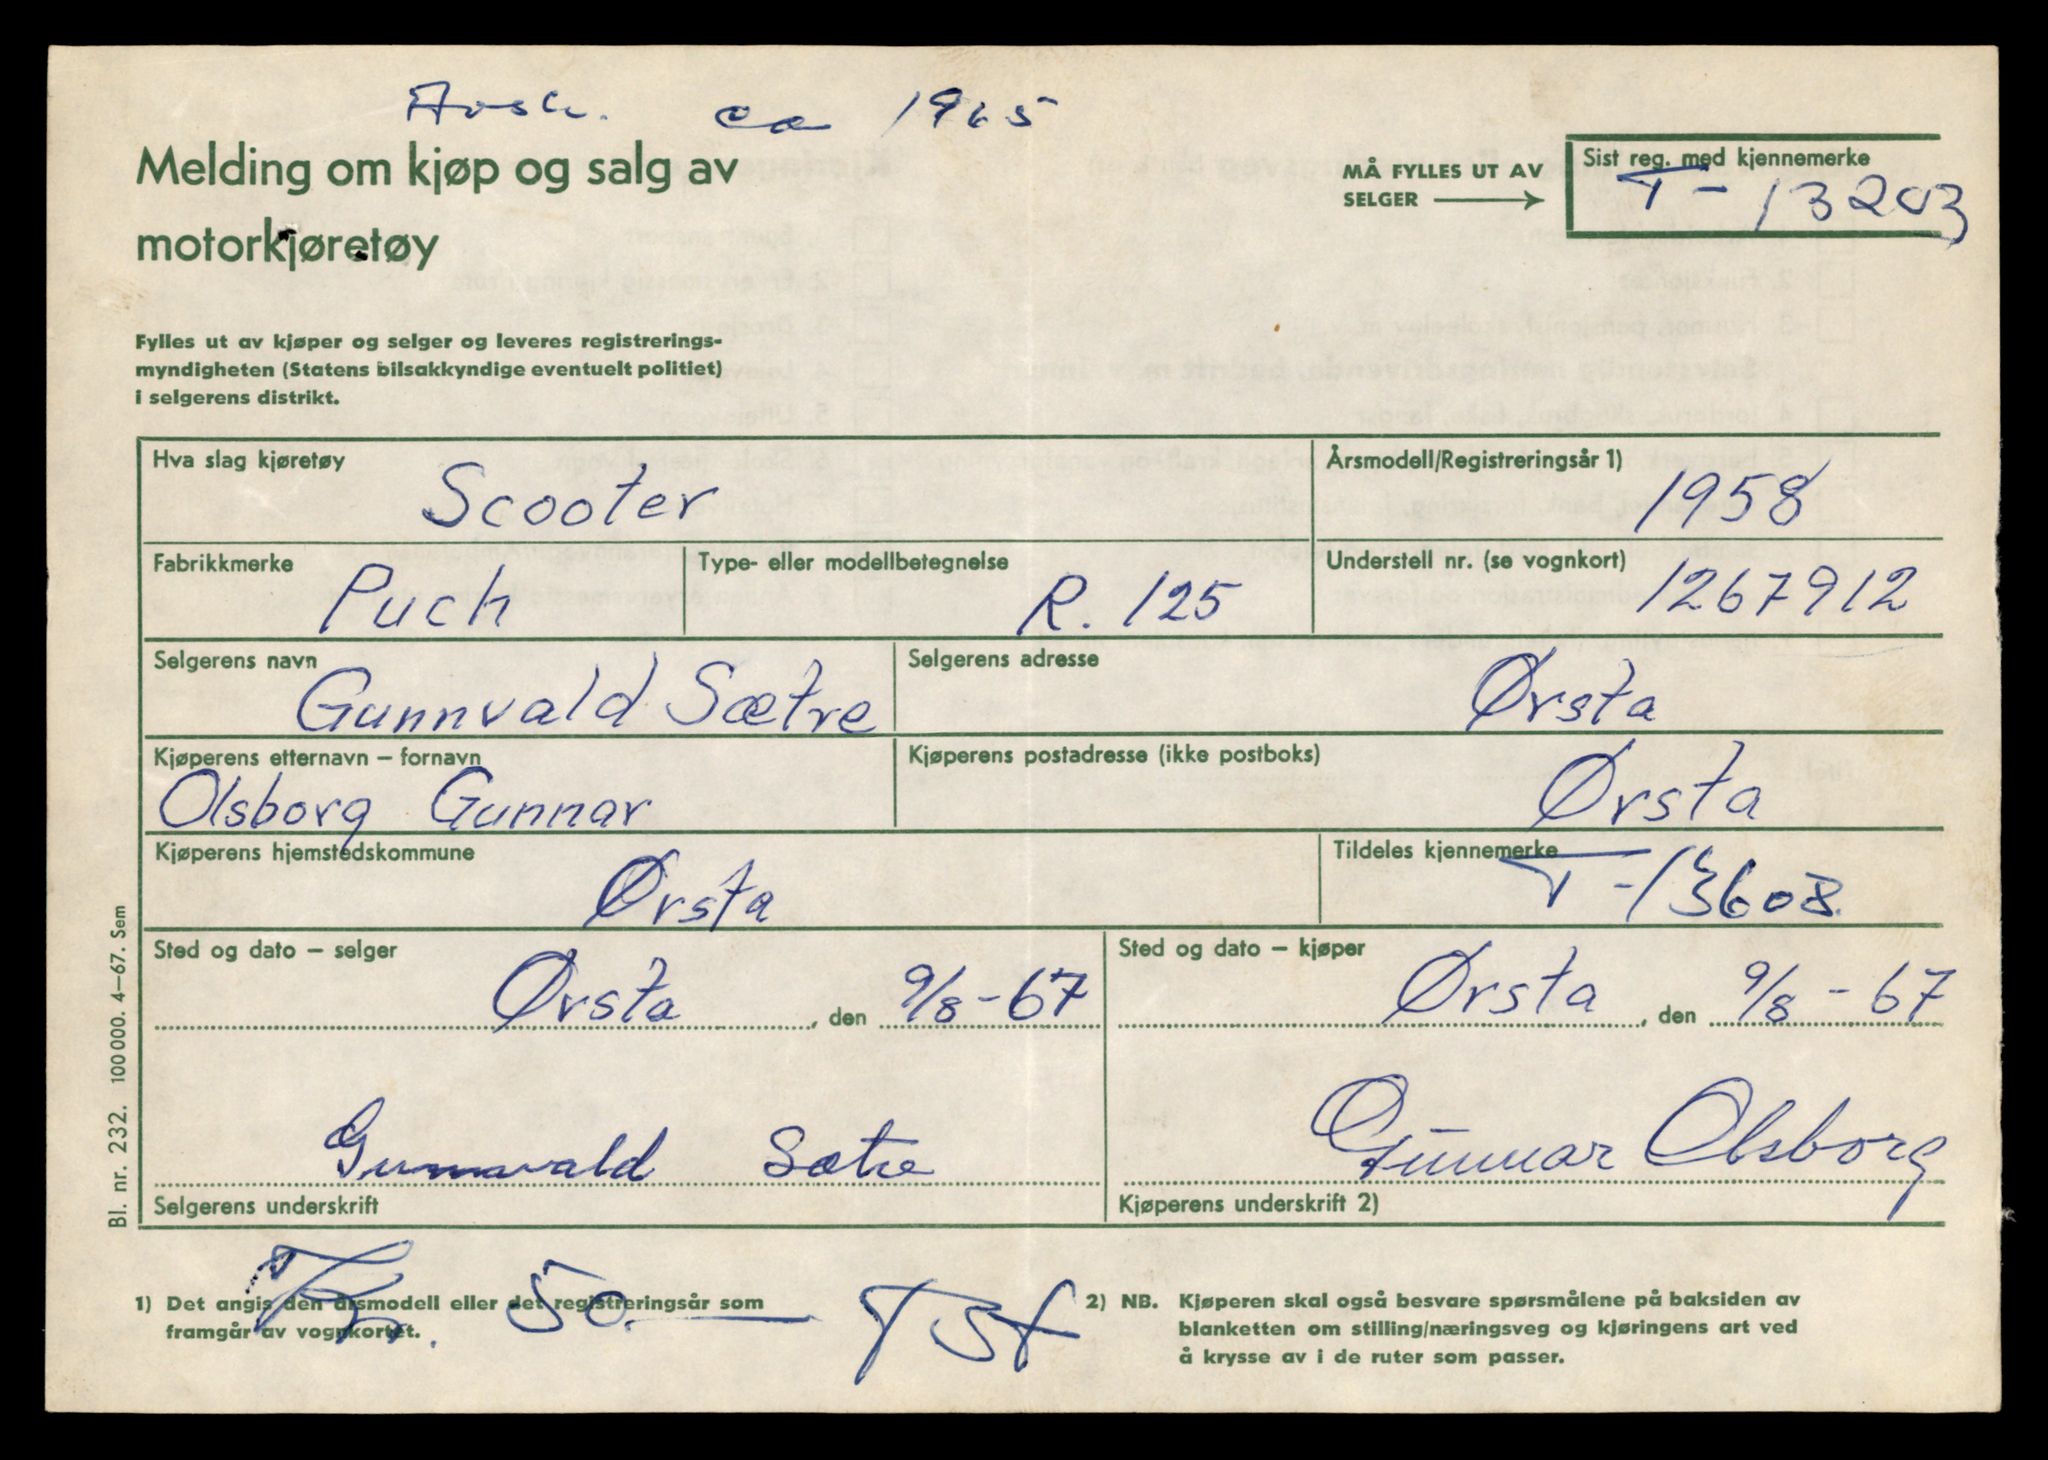 Avsk. ca 1965
Melding om kjøp og salg av
motorkjøretøy
MÅ FYLLES UT AV
SELGER
Sist reg. med kjennemerke
T-13203
Fylles ut av kjøper og selger og leveres registrerings-
myndigheten (Statens bilsakkyndige eventuelt politiet)
i selgerens distrikt.
Hva slag kjøretøy
Scooter
Årsmodell/Registreringsår 1)
1958
Fabrikkmerke
Puch
Type- eller modellbetegnelse
R. 125
Understell nr. (se vognkort)
1267912
Selgerens navn
Gunnvald Sætre
Selgerens adresse
Ørsta
Kjøperens etternavn – fornavn
Olsborg Gunnar
Kjøperens postadresse (ikke postboks)
Ørsta
Kjøperens hjemstedskommune
Ørsta
Tildeles kjennemerke
T-13608
Sted og dato – selger
Ørsta, den 9/8-67
Sted og dato – kjøper
Ørsta, den 9/8-67
Gunnvald Sætre
Selgerens underskrift
Gunnar Olsborg
Kjøperens underskrift 2)
Kr. 50.—
1) Det angis den årsmodell eller det registreringsår som
framgår av vognkortet.
2) NB. Kjøperen skal også besvare spørsmålene på baksiden av
blanketten om stilling/næringsveg og kjøringens art ved
å krysse av i de ruter som passer.
Bl. nr. 232. 100 000. 4–67. Sem